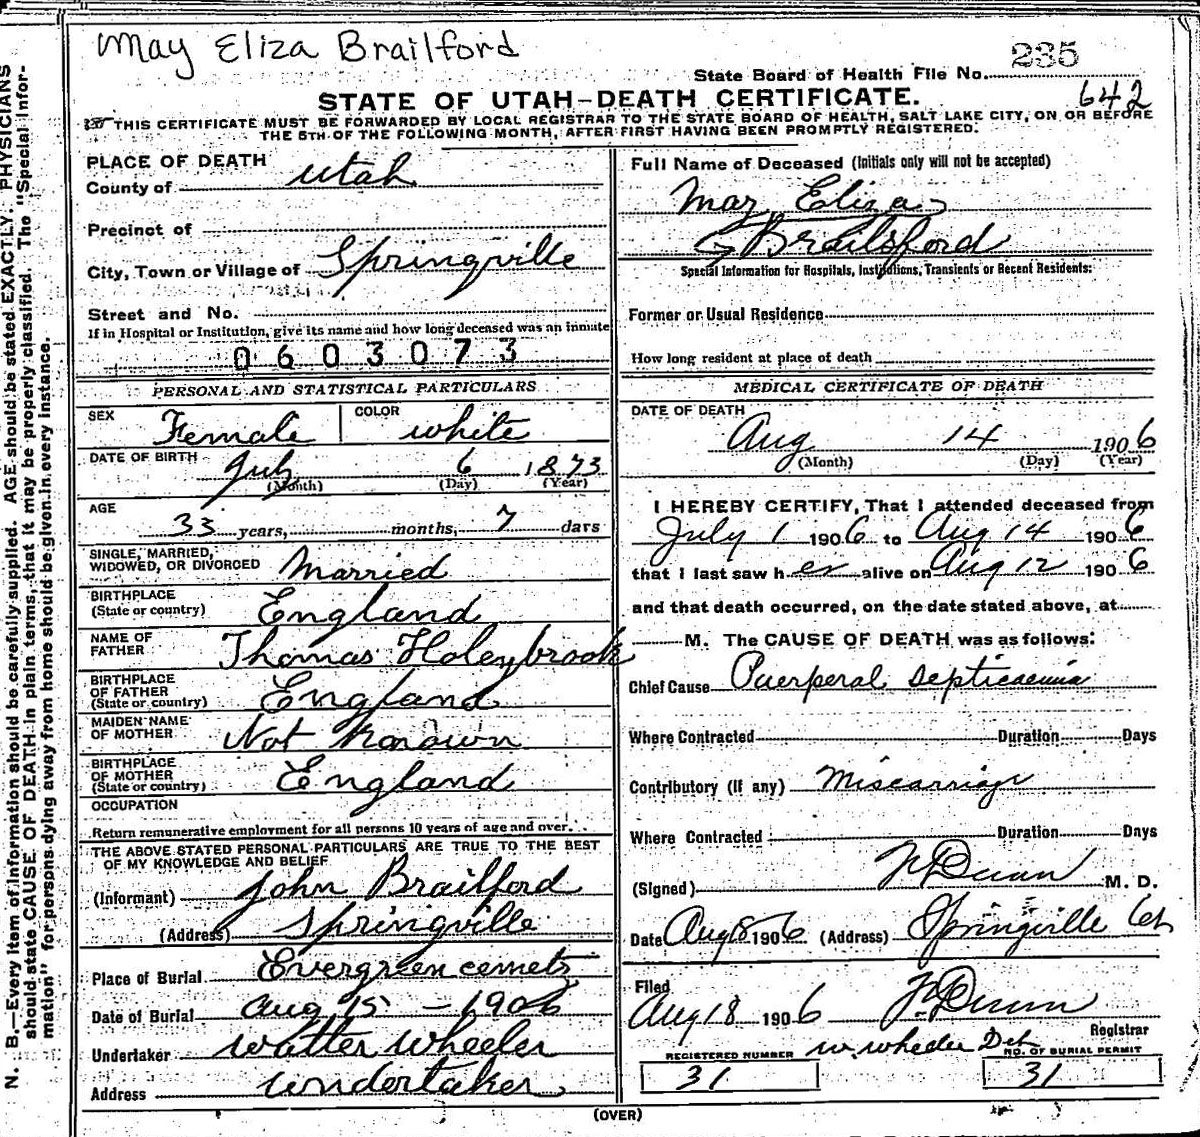 May Eliza Brailford
235
State Board of Health File No.
642
STATE OF UTAH-DEATH CERTIFICATE.
THIS CERTIFICATE MUST BE FORWARDED BY LOCAL REGISTRAR TO THE STATE BOARD OF HEALTH, SALT LAKE CITY, ON OR BEFORE
THE 5TH OF THE FOLLOWING MONTH, AFTER FIRST HAVING BEEN PROMPTLY REGISTERED.
PLACE OF DEATH
County of Utah
Precinct of
City, Town or Village of Springville
Street and No.
If in Hospital or Institution, give its name and how long deceased was an inmate
0603073
PERSONAL AND STATISTICAL PARTICULARS
SEX Female COLOR white
DATE OF BIRTH July 6 1873
(Month) (Day) (Year)
AGE
33 years, months, 7 days
SINGLE, MARRIED,
WIDOWED, OR DIVORCED Married
BIRTHPLACE
(State or country) England
NAME OF
FATHER Thomas Holeybrook
BIRTHPLACE
OF FATHER
(State or country) England
MAIDEN NAME
OF MOTHER Not Known
BIRTHPLACE
OF MOTHER
(State or country) England
OCCUPATION
Return remunerative employment for all persons 10 years of age and over.
THE ABOVE STATED PERSONAL PARTICULARS ARE TRUE TO THE BEST
OF MY KNOWLEDGE AND BELIEF
(Informant) John Brailford
(Address) Springville
Place of Burial Evergreen cemety
Date of Burial Aug 15 - 1906
Undertaker Walter Wheeler
Address undertaker
Full Name of Deceased (Initials only will not be accepted)
May Eliza
Brailsford
Special Information for Hospitals, Institutions, Transients or Recent Residents:
Former or Usual Residence
How long resident at place of death
MEDICAL CERTIFICATE OF DEATH
DATE OF DEATH
Aug 14 1906
(Month) (Day) (Year)
I HEREBY CERTIFY, That I attended deceased from
July 1 1906 to Aug 14 1906
that I last saw her alive on Aug 12 1906
and that death occurred, on the date stated above, at
M. The CAUSE OF DEATH was as follows:
Chief Cause Puerperal Septicaemia
Where Contracted Duration Days
Contributory (if any) Miscarriage
Where Contracted Duration Days
(Signed) Dunn M. D.
Date Aug 18 1906 (Address) Springville Ut
Filed
Aug 18 1906 Dunn
Registrar
W. Wheeler Det
REGISTERED NUMBER NO. OF BURIAL PERMIT
31 31
(OVER)
N. B.—Every item of information should be carefully supplied. AGE should be stated EXACTLY. PHYSICIANS
should state CAUSE OF DEATH in plain terms, that it may be properly classified. The "Special Infor-
mation" for persons dying away from home should be given in every instance.